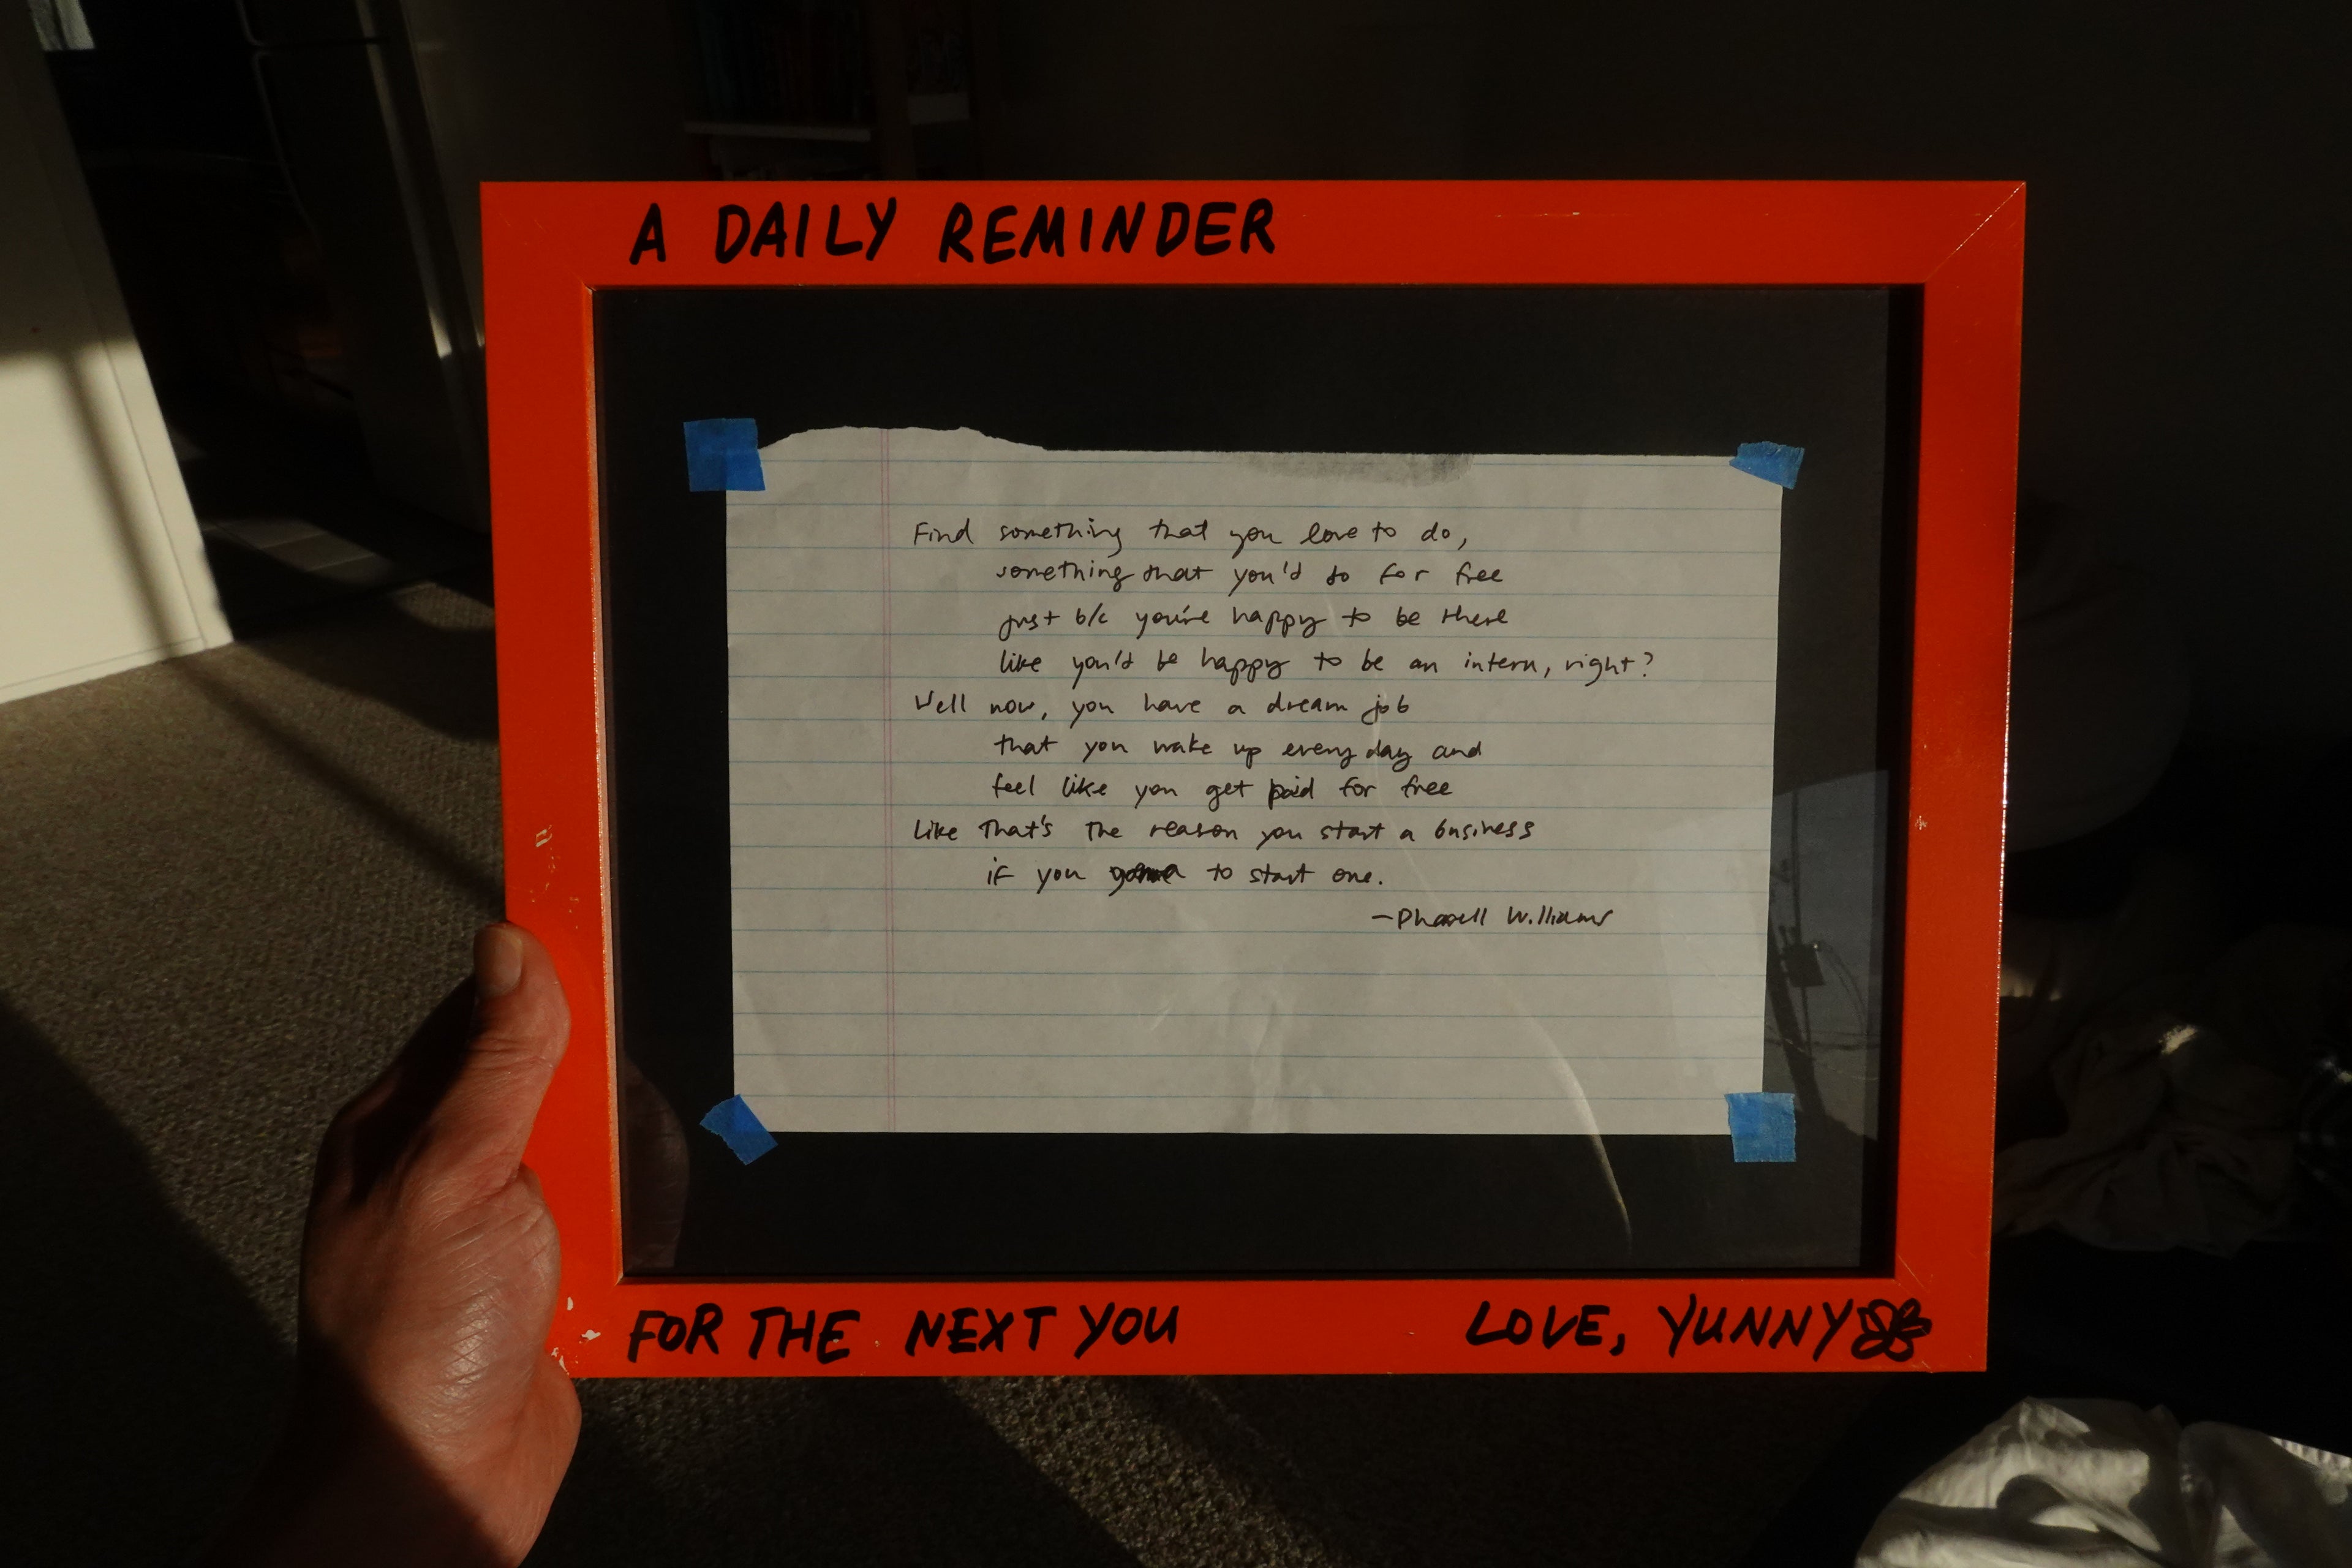 A DAILY REMINDER
Find something that you love to do,
something that you'd do for free
just b/c you're happy to be there
like you'd be happy to be an intern, right?
Well now, you have a dream job
that you wake up every day and
feel like you get paid for free
Like that's the reason you start a business
if you to start one.
-Pharell Williams
FOR THE NEXT YOU
LOVE, YUNNY